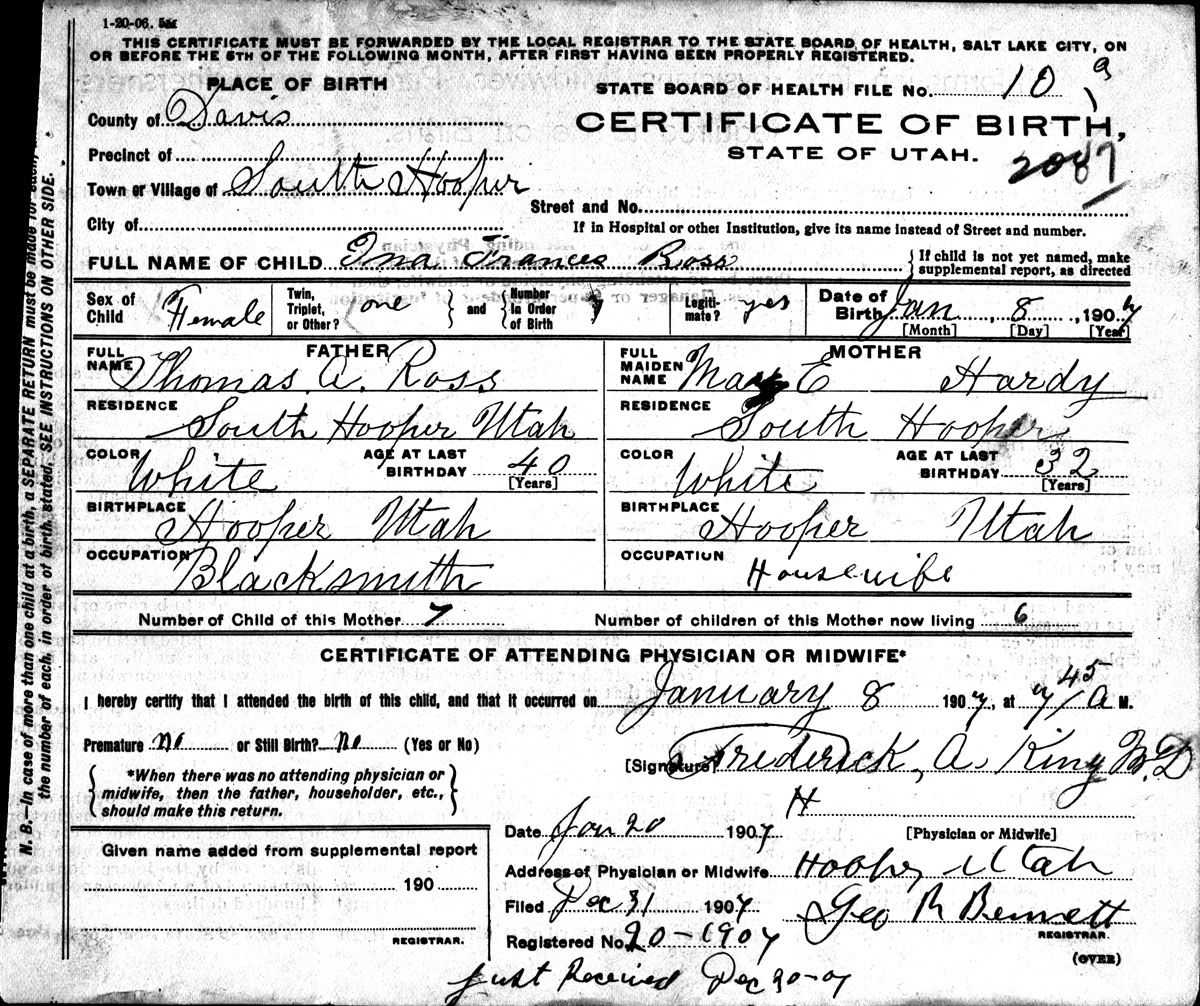 1-20-06. 5M
THIS CERTIFICATE MUST BE FORWARDED BY THE LOCAL REGISTRAR TO THE STATE BOARD OF HEALTH, SALT LAKE CITY, ON
OR BEFORE THE 5TH OF THE FOLLOWING MONTH, AFTER FIRST HAVING BEEN PROPERLY REGISTERED.
PLACE OF BIRTH
STATE BOARD OF HEALTH FILE No. 10 9
County of Davis
CERTIFICATE OF BIRTH,
Precinct of
STATE OF UTAH.
2087
Town or Village of South Hooper
Street and No.
City of
If in Hospital or other Institution, give its name instead of Street and number.
FULL NAME OF CHILD Ina Frances Ross
If child is not yet named, make supplemental report, as directed
Sex of Child Female
Twin, Triplet, or Other? one
and Number in Order of Birth
Legitimate? yes
Date of Birth Jan 8, 1907
[Month] [Day] [Year]
FATHER
FULL NAME Thomas A. Ross
RESIDENCE South Hooper Utah
COLOR White AGE AT LAST BIRTHDAY 40
[Years]
BIRTHPLACE Hooper Utah
OCCUPATION Blacksmith
MOTHER
FULL MAIDEN NAME May E Hardy
RESIDENCE South Hooper
COLOR White AGE AT LAST BIRTHDAY 32
[Years]
BIRTHPLACE Hooper Utah
OCCUPATION Housewife
Number of Child of this Mother 7 Number of children of this Mother now living 6
CERTIFICATE OF ATTENDING PHYSICIAN OR MIDWIFE*
I hereby certify that I attended the birth of this child, and that it occurred on January 8 1907, at 7/45 A M.
Premature no or Still Birth? No (Yes or No)
*When there was no attending physician or
midwife, then the father, householder, etc.,
should make this return.
[Signature] Frederick, A. King M.D
H
Date Jan 20 1907
[Physician or Midwife]
Given name added from supplemental report
190
REGISTRAR.
Address of Physician or Midwife Hooper Utah
Filed Dec 31 1907 Geo R Bennett
REGISTRAR.
Registered No. 20-1907
(OVER)
Just Received Dec 30-07
N. B.—In case of more than one child at a birth, a SEPARATE RETURN must be made for each,
the number of each, in order of birth, stated. SEE INSTRUCTIONS ON OTHER SIDE.